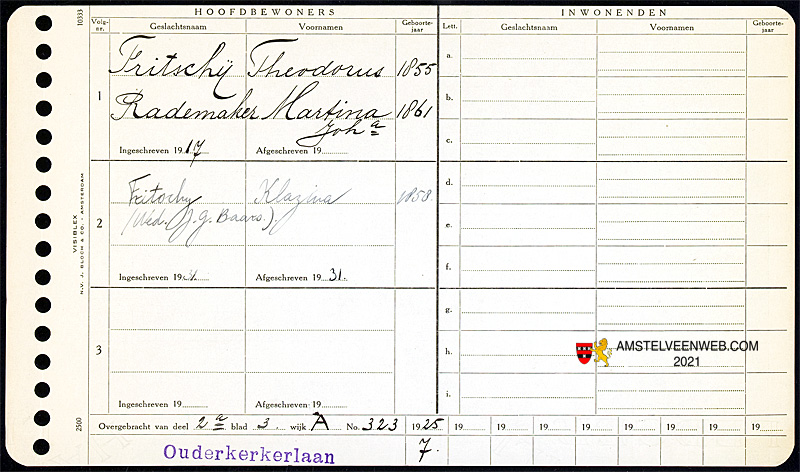 HOOFDBEWONERS
INWONENDEN
Volg-nr.
Geslachtsnaam
Voornamen
Geboorte-jaar
Lett.
Geslachtsnaam
Voornamen
Geboorte-jaar
1
Fritschÿ Theodorus 1855
Rademaker Martina 1861
Joha
Ingeschreven 1917
Afgeschreven 19
2
Fritschy Klazina 1858.
(Wed. J.G. Baars.)
Ingeschreven 19
Afgeschreven 1931.
3
Ingeschreven 19
Afgeschreven 19
a.
b.
c.
d.
e.
f.
g.
h.
i.
Overgebracht van deel 2a blad 3. wijk A No. 323 1925 19 19 19 19 19 19 19 19
Ouderkerkerlaan
7.
10333
VISIBLEX
N.V. J. BLOCH & CO. - AMSTERDAM
2500
AMSTELVEENWEB.COM
2021